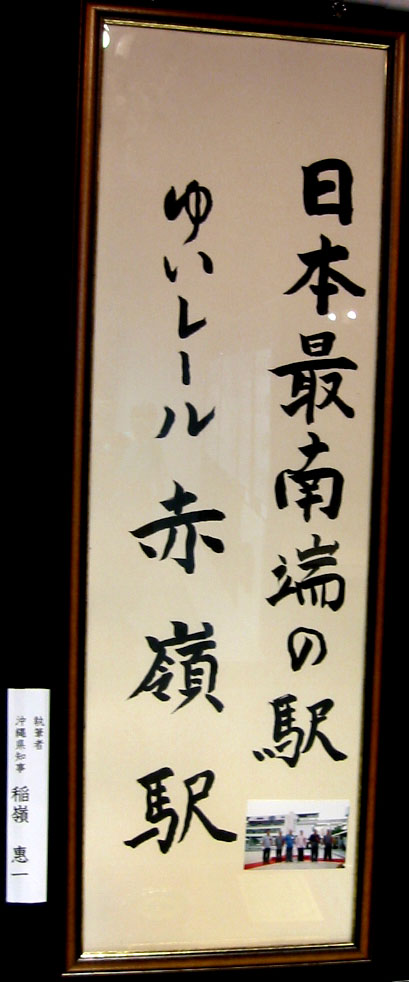 日本最南端の駅
ゆいレール赤嶺駅
執筆者
沖縄県知事 稲嶺 惠一